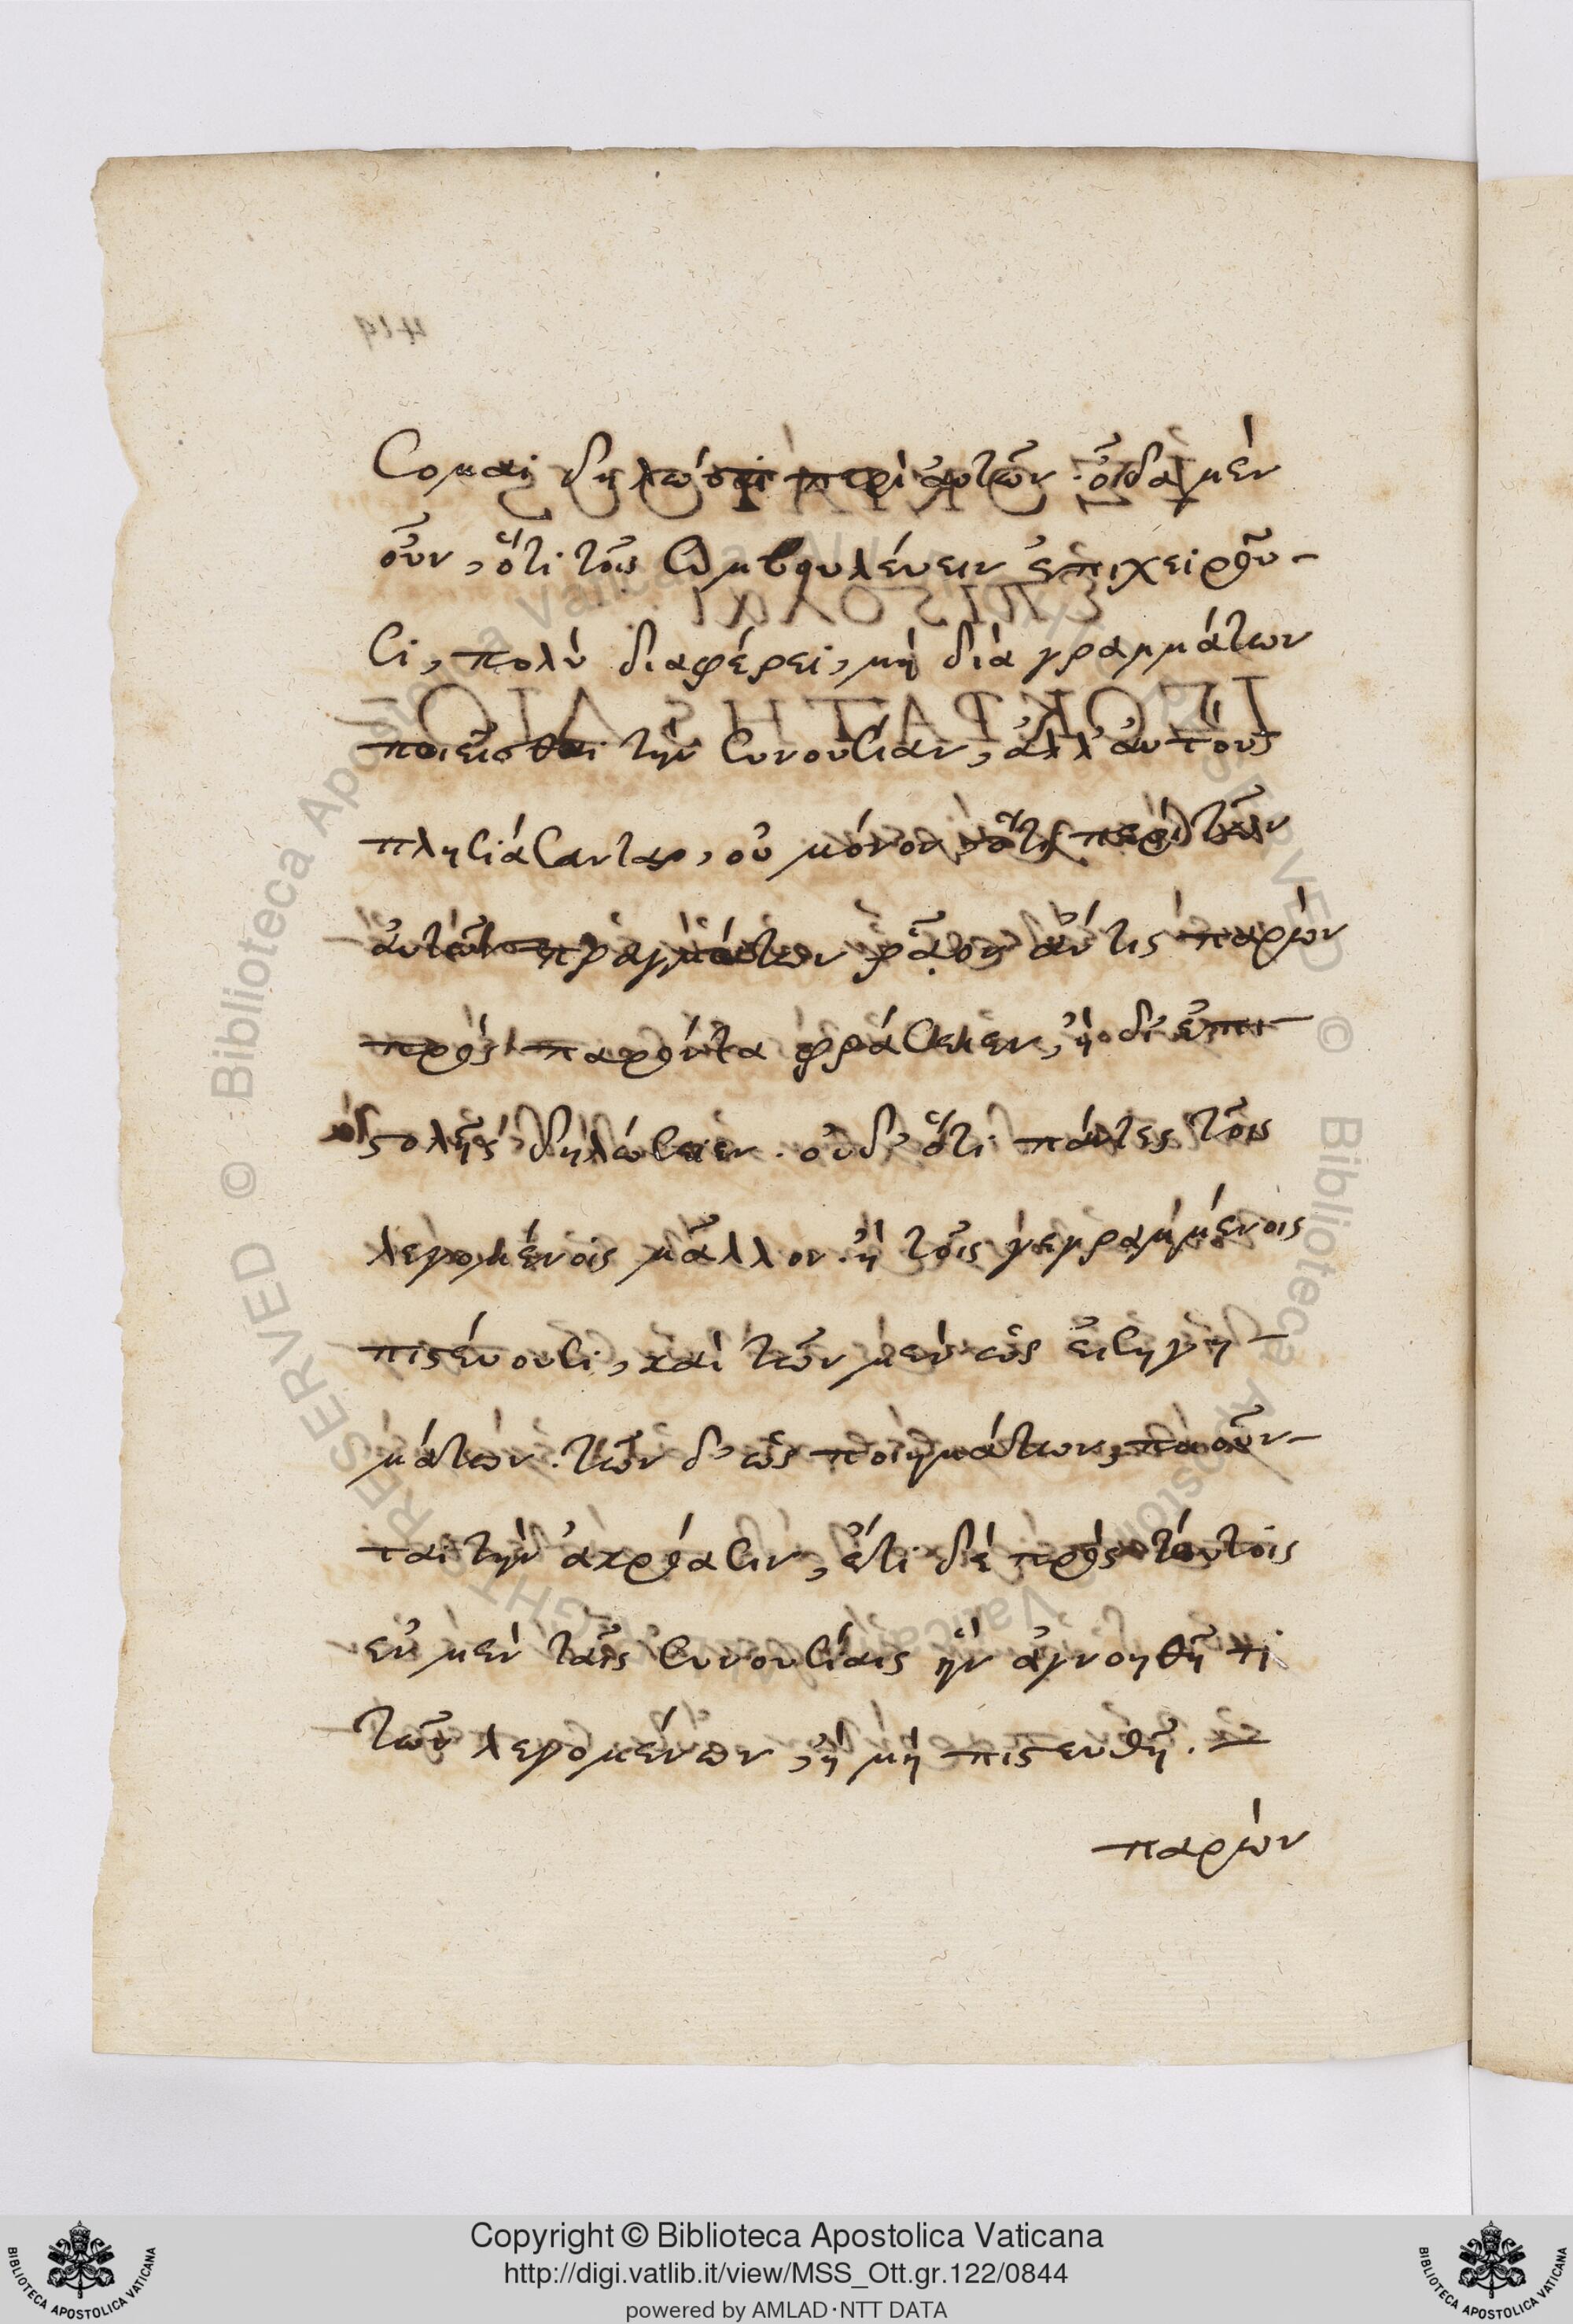 σομαι δηλῶσαι περὶ ἀυτῶν. οἶδα μὲν
οὖν, ὅτι τοῖς συμβουλέυειν ἐπιχειροῦ-
σι, πολὺ διαφέρει, μὴ διὰ γραμμάτων
ποιεῖσθαι τὴν συνουσίαν, ἀλλ' ἀυτοὺς
πλησιάσαντας, οὐ μόνον ὅτι περὶ τῶν
ἀυτῶν πραγμάτων ρᾷον ἄν τις παρὼν
πρὸς παρόντα φράσειεν, ἢ δι' ἐπι-
στολῆς δηλώσειεν. οὐδ' ὅτι πάντες τοῖς
λεγομένοις μᾶλλον ἢ τοῖς γεγραμμένοις
πιστέυουσι, καὶ τῶν μὲν ὡς εἰσηγη-
μάτων. τῶν δ' ὡς ποιημάτων, ποιοῦν-
ται τὴν ἀκρόασιν, ἔτι δὲ πρὸς τούτοις
ἐν μὲν ταῖς συνουσίαις ἢν ἀγνοηθῇ τι
τῶν λεγομένων, ἢ μὴ πιστευθῇ. —
παρὼν
419
Copyright © Biblioteca Apostolica Vaticana
http://digi.vatlib.it/view/MSS_Ott.gr.122/0844
powered by AMLAD·NTT DATA
BIBLIOTECA APOSTOLICA VATICANA
BIBLIOTECA APOSTOLICA VATICANA